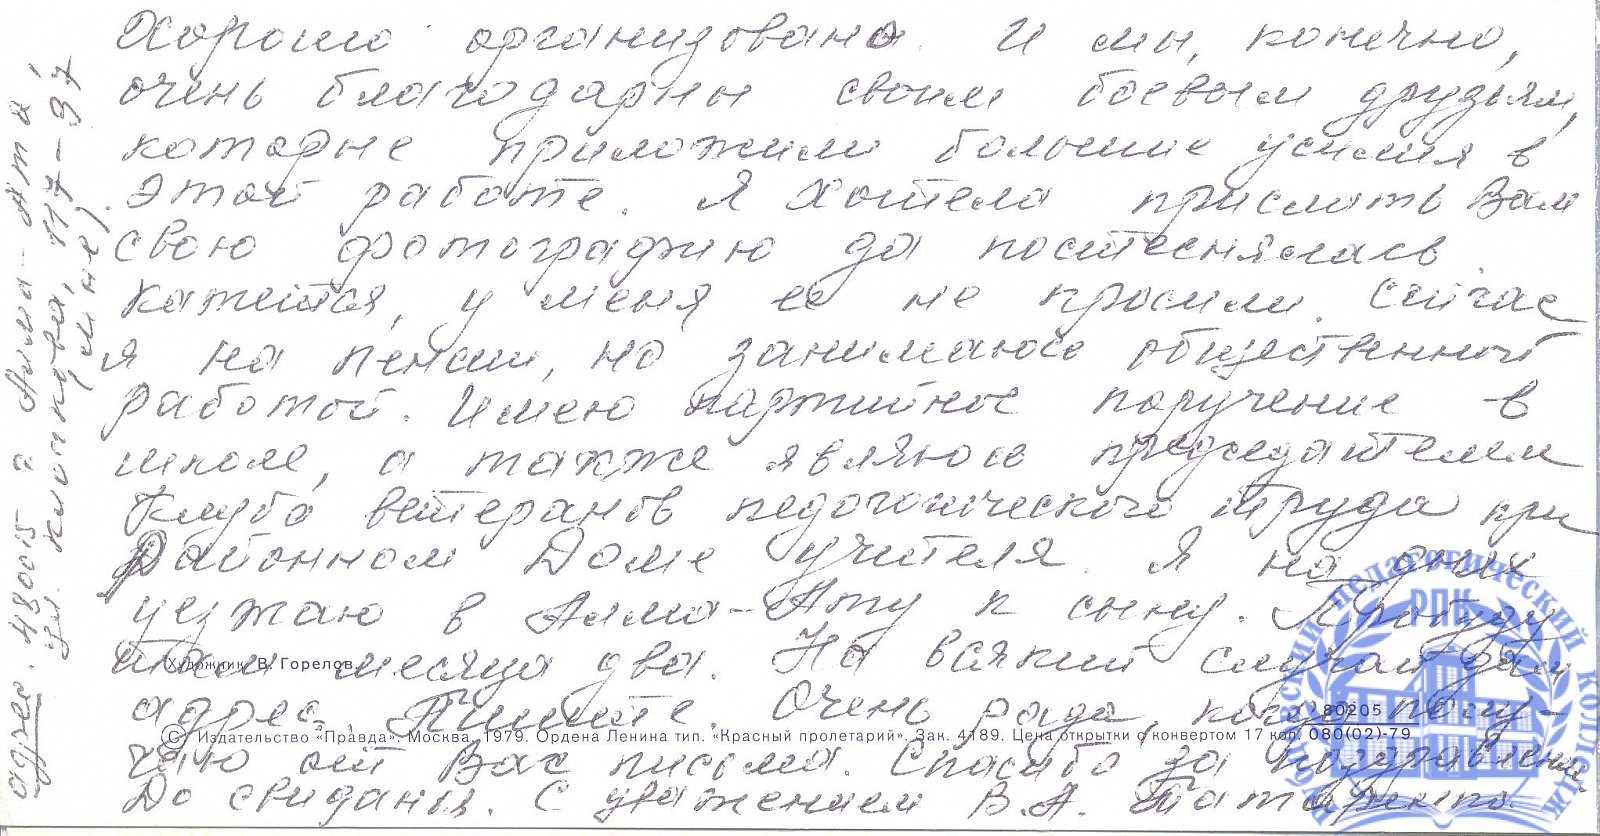 Хорошо организовано. И мы, конечно,
очень благодарны своим боевым друзьям,
которые приложили большие усилия в
этой работе. Я хотела прислать Вам
свою фотографию да постеснялась.
Кажется, у меня её не просили. Сейчас
я на пенсии, но занимаюсь общественной
работой. Имею партийное поручение в
школе, а также являюсь председателем
Клуба ветеранов педагогического труда при
Районном Доме учителя. Я на днях
уезжаю в Алма-Ату к сыну. Пробуду
там месяца два. На всякий случай дам
адрес. Пишите. Очень рада, когда полу-
чаю от Вас письма. Спасибо за поздравления
До свидания. С уважением В. А. Татаренко.
адрес. 480015 г. Алма-Ата,
ул. 117-97
(мне)
Художник В. Горелов
80205
© Издательство «Правда». Москва. 1979. Ордена Ленина тип. «Красный пролетарий». Зак. 4189. Цена открытки с конвертом 17 коп. 080(02)-79
РПК
РОСТОВСКИЙ ПЕДАГОГИЧЕСКИЙ КОЛЛЕДЖ